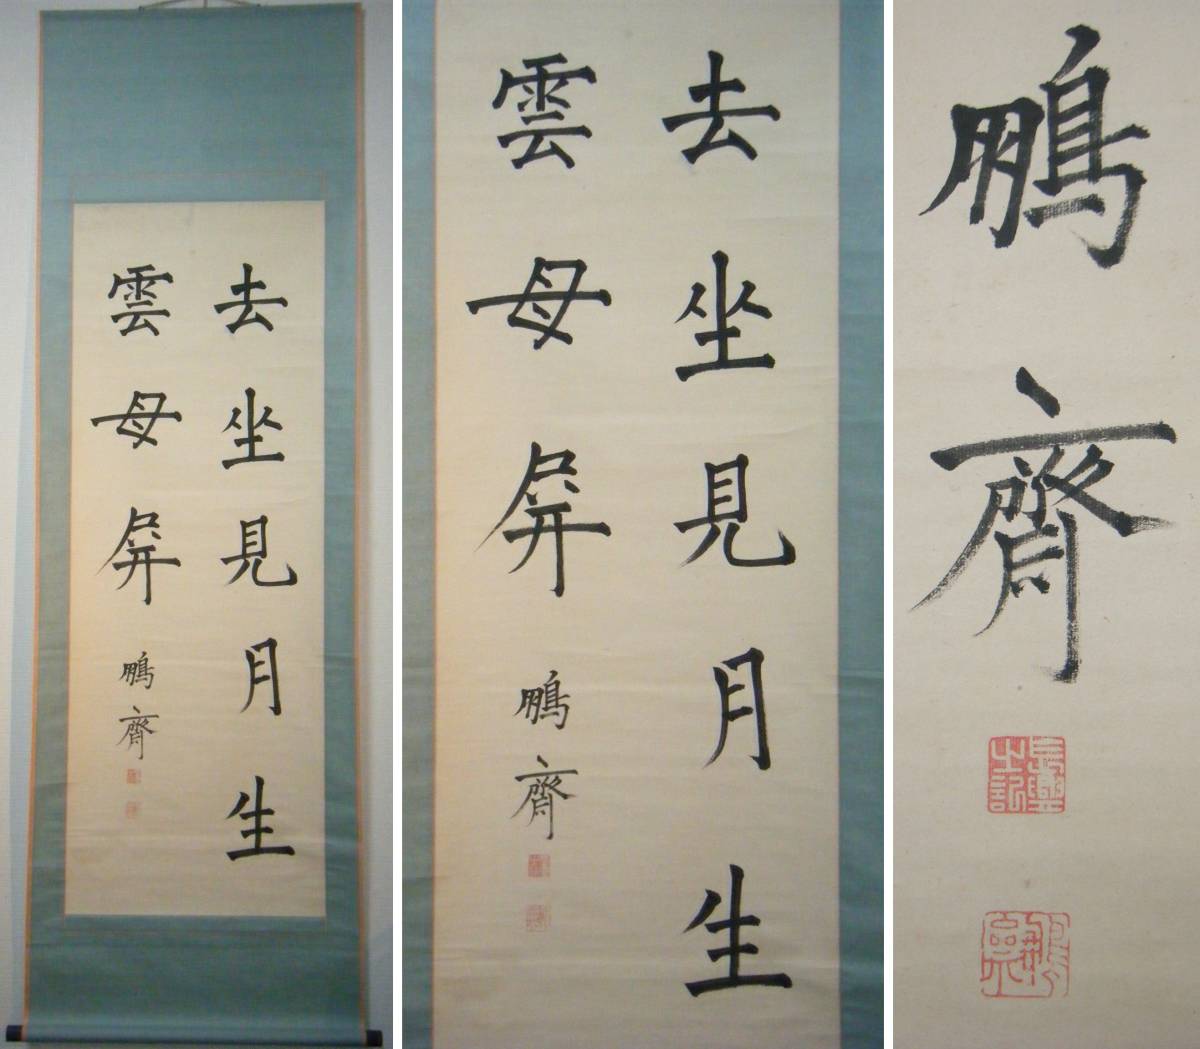 去坐見月生
雲母屏
鵬齋
去坐見月生
雲母屏
鵬齋
鵬齋